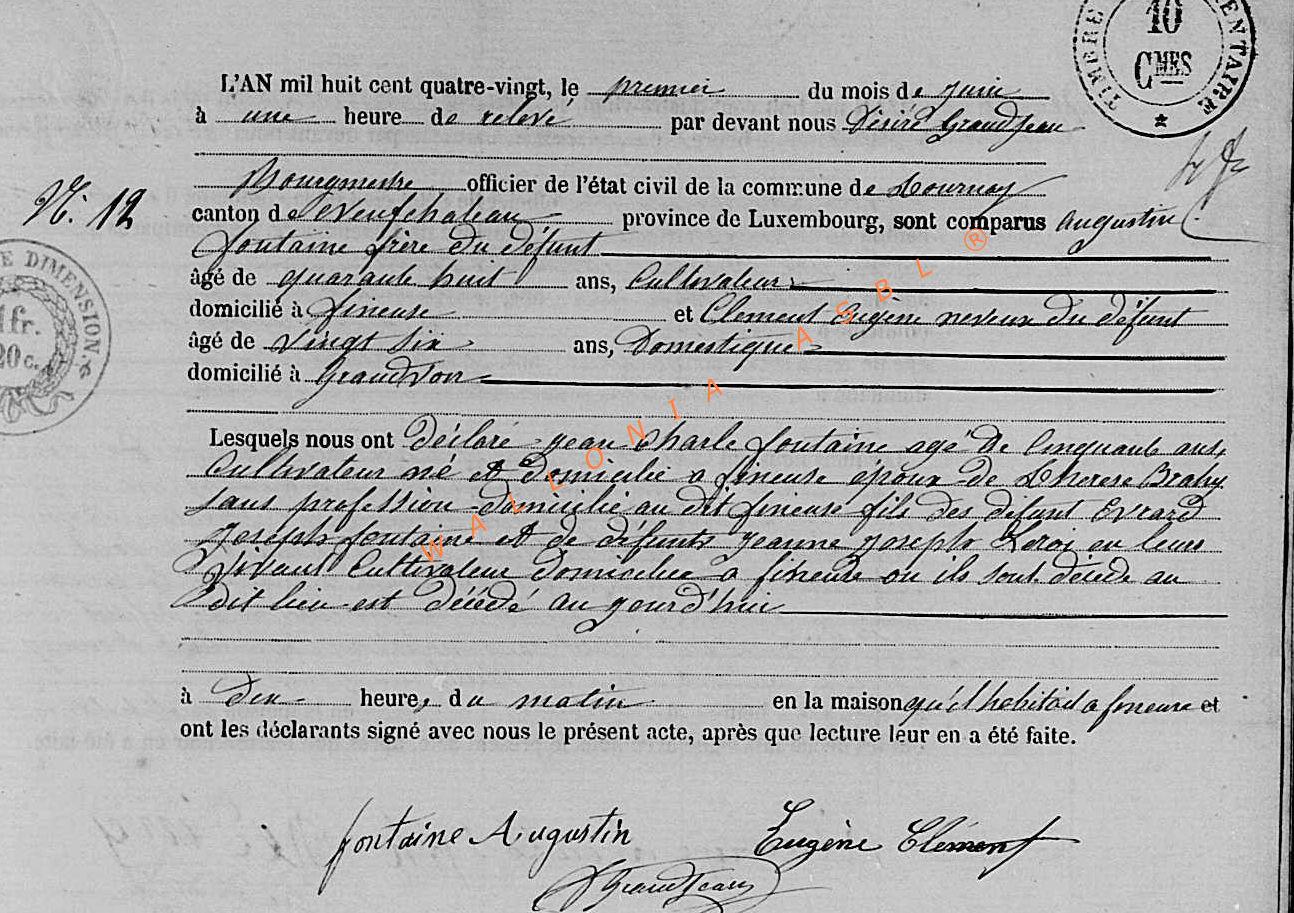 TIMBRE
10
CMES
L'AN mil huit cent quatre-vingt, le premier du mois de juin
à une heure de relevé par devant nous Désiré Grandjean
Bourgmestre officier de l'état civil de la commune de Tournay
N: 12
canton de Neufchateau province de Luxembourg, sont comparus Augustin
fontaine frère du défunt
E DIMENSION
1 fr.
20 c.
âgé de quarante huit ans, Cultivateur
domicilié à fineuse et Clement Eugène neveux du défunt
âgé de Vingt Six ans, Domestique
domicilié à Grandvoir
Lesquels nous ont Déclaré jean Charle fontaine agé de Cinquante ans,
Cultivateur né et domicilié a fineuse époux de Therese Brahy
sans profession domicilié au dit fineuse fils des défunt Evrard
Joseph fontaine et de défunts Jeanne Joseph Leroi en leur
Vivant Cultivateur domicilée a fineuse ou ils sont décédé au
dit lieu est décédé au jourd'hui
à deu heure, du matin en la maison qu'il habitait a fineuse et
ont les déclarants signé avec nous le présent acte, après que lecture leur en a été faite.
fontaine Augustin Eugène Clément
Grandjean
WALLONIA ASBL ®